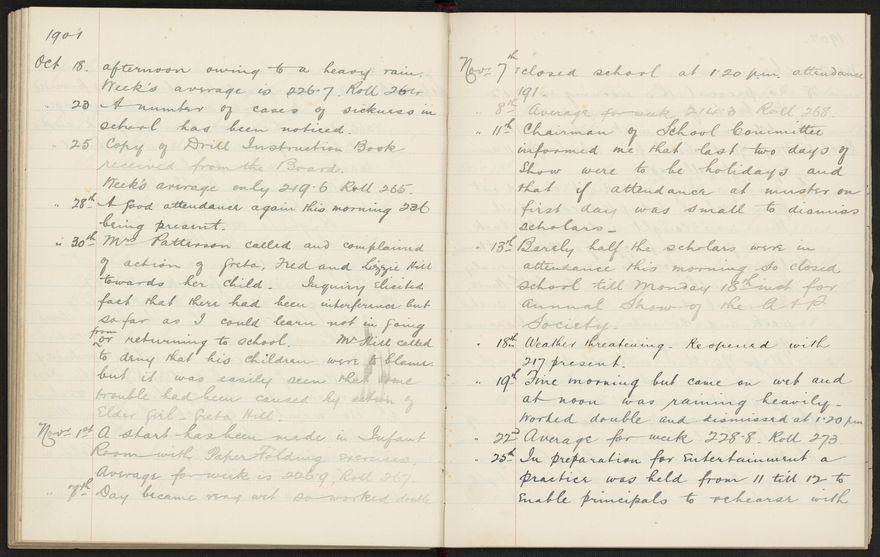 1901
Oct 18. afternoon owing to a heavy rain.
Week's average is 226.7. Roll 264.
" 23 A number of cases of sickness in
school has been noticed.
" 25 Copy of Drill Instruction Book
received from the Board.
Week's average only 219.6 Roll 265.
" 28th A good attendance again this morning 236
being present.
" 30th Mrs Patterson called and complained
of action of Greta, Fred and Lizzie Hill
towards her child. Inquiry elicited
fact that there had been interference but
so far as I could learn not in going
from
or returning to school. Mr Hill called
to deny that his children were to blame
but it was easily seen that some
trouble had been caused by action of
Elder Girl - Greta Hill.
Nov. 1st A start has been made in Infant
Room with Paper Folding exercises.
Average for week is 226.9, Roll 267
" 7th Day became very wet so worked double
Nov. 7th closed school at 1.20 p.m. attendance
191.
" 8th Average for week 214.3 Roll 268.
" 11th Chairman of School Committee
informed me that last two days of
Show were to be holidays and
that if attendance at muster on
first day was small to dismiss
scholars -
" 13th Barely half the scholars were in
attendance this morning so closed
school till Monday 18th inst for
Annual Show of the A & P
Society.
" 18th Weather threatening. Reopened with
217 present.
" 19th Fine morning but came on wet and
at noon was raining heavily -
worked double and dismissed at 1.20 pm
" 22d Average for week 228.8. Roll 273
" 25th In preparation for Entertainment a
practice was held from 11 till 12 to
enable principals to rehearse with